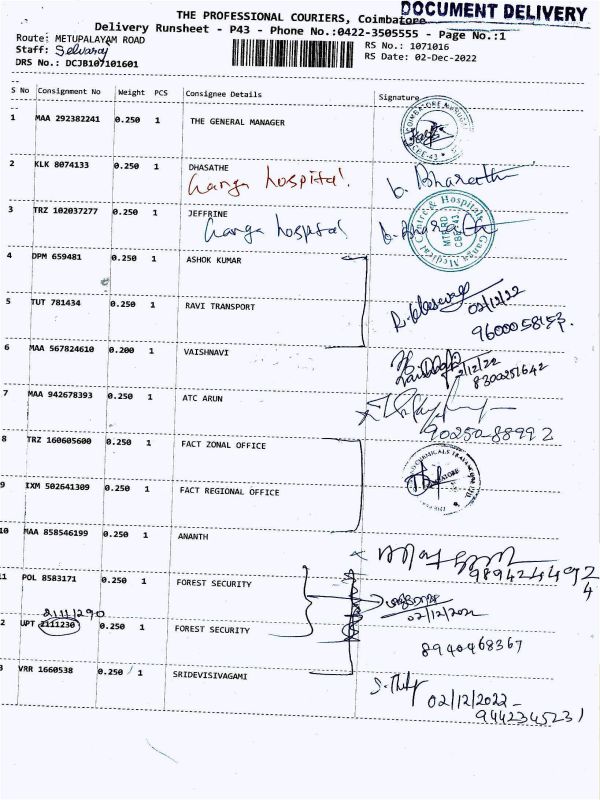 DOCUMENT DELIVERY
THE PROFESSIONAL COURIERS, Coimbatore
Delivery Runsheet - P43 - Phone No.:0422-3505555 - Page No.:1
Route: METUPALAYAM ROAD
RS No.: 1071016
Staff: Selvaraj
RS Date: 02-Dec-2022
DRS No.: DCJB107101601
S No Consignment No Weight PCS Consignee Details Signature
1 MAA 292382241 0.250 1 THE GENERAL MANAGER
2 KLK 8074133 0.250 1 DHASATHE
Ganga hospital. b. Bharath
3 TRZ 102037277 0.250 1 JEFFRINE
Ganga hospital
Ganga Medical Centre & Hospitals
MTP RD
CBE-43
4 DPM 659481 0.250 1 ASHOK KUMAR
5 TUT 781434 0.250 1 RAVI TRANSPORT
02/12/22
6 MAA 567824610 0.200 1 VAISHNAVI
2/12/22
8300251642
7 MAA 942678393 0.250 1 ATC ARUN
90250-88992
8 TRZ 160605600 0.250 1 FACT ZONAL OFFICE
9 IXM 502641309 0.250 1 FACT REGIONAL OFFICE
10 MAA 858546199 0.250 1 ANANTH
11 POL 8583171 0.250 1 FOREST SECURITY
02/12/2022
2111290
12 UPT 2111230 0.250 1 FOREST SECURITY
8940468367
13 VRR 1660538 0.250 1 SRIDEVISIVAGAMI
02/12/2022-
9442345231